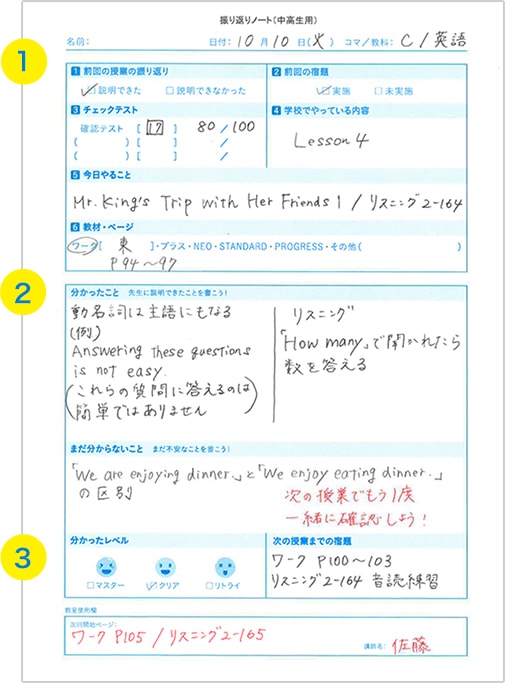 振り返りノート(中高生用)
名前: 日付: 10月10日(火) コマ/教科: C/英語
1
1 前回の授業の振り返り
☑説明できた □説明できなかった
2 前回の宿題
☑実施 □未実施
3 チェックテスト
確認テスト [ 17 ] 80/100
( ) [ ] /
( ) [ ] /
4 学校でやっている内容
Lesson 4
5 今日やること
Mr. King's Trip with Her Friends 1 / リスニング2-164
6 教材・ページ
ワーク[ 東 ]・プラス・NEO・STANDARD・PROGRESS・その他( )
P94~97
2
分かったこと 先生に説明できたことを書こう!
動名詞は主語にもなる
(例)
Answering these questions
is not easy.
(これらの質問に答えるのは
簡単ではありません)
リスニング
「How many」で聞かれたら
数を答える
まだ分からないこと まだ不安なことを書こう!
「We are enjoying dinner.」と「We enjoy eating dinner.」
の区別
次の授業でもう1度
一緒に確認しよう!
3
分かったレベル
□マスター ☑クリア □リトライ
次の授業までの宿題
ワーク P100~103
リスニング2-164 音読練習
教室使用欄
次回開始ページ:
ワーク P105 / リスニング2-165
講師名: 佐藤